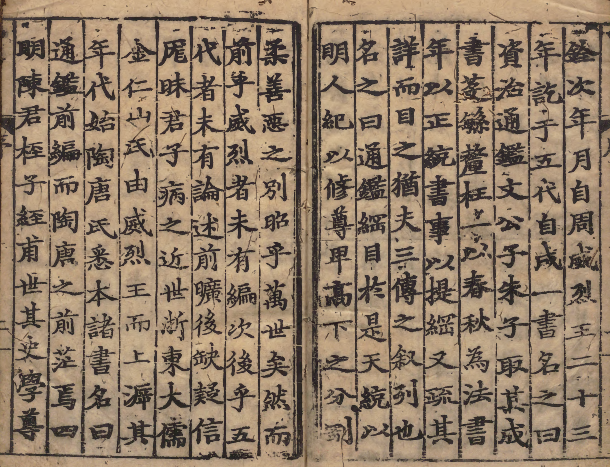 銓次年月自周威烈王二十三
年訖于五代自成一書名之曰
資治通鑑文公子朱子取其成
書芟繇釐枉一以春秋為法書
年以正統書事以提綱又疏其
詳而目之猶夫三傳之叙列也
名之曰通鑑綱目於是天統以
明人紀以修尊卑高下之分剛
柔善惡之別昭乎萬世矣然而
前乎威烈者未有編次後乎五
代者未有論述前曠後缺疑信
厖昧君子病之近世浙東大儒
金仁山氏由威烈王而上溯其
年代始陶唐氏悉本諸書名曰
通鑑前編而陶唐之前茫焉四
明陳君桱子經甫世其史學尊